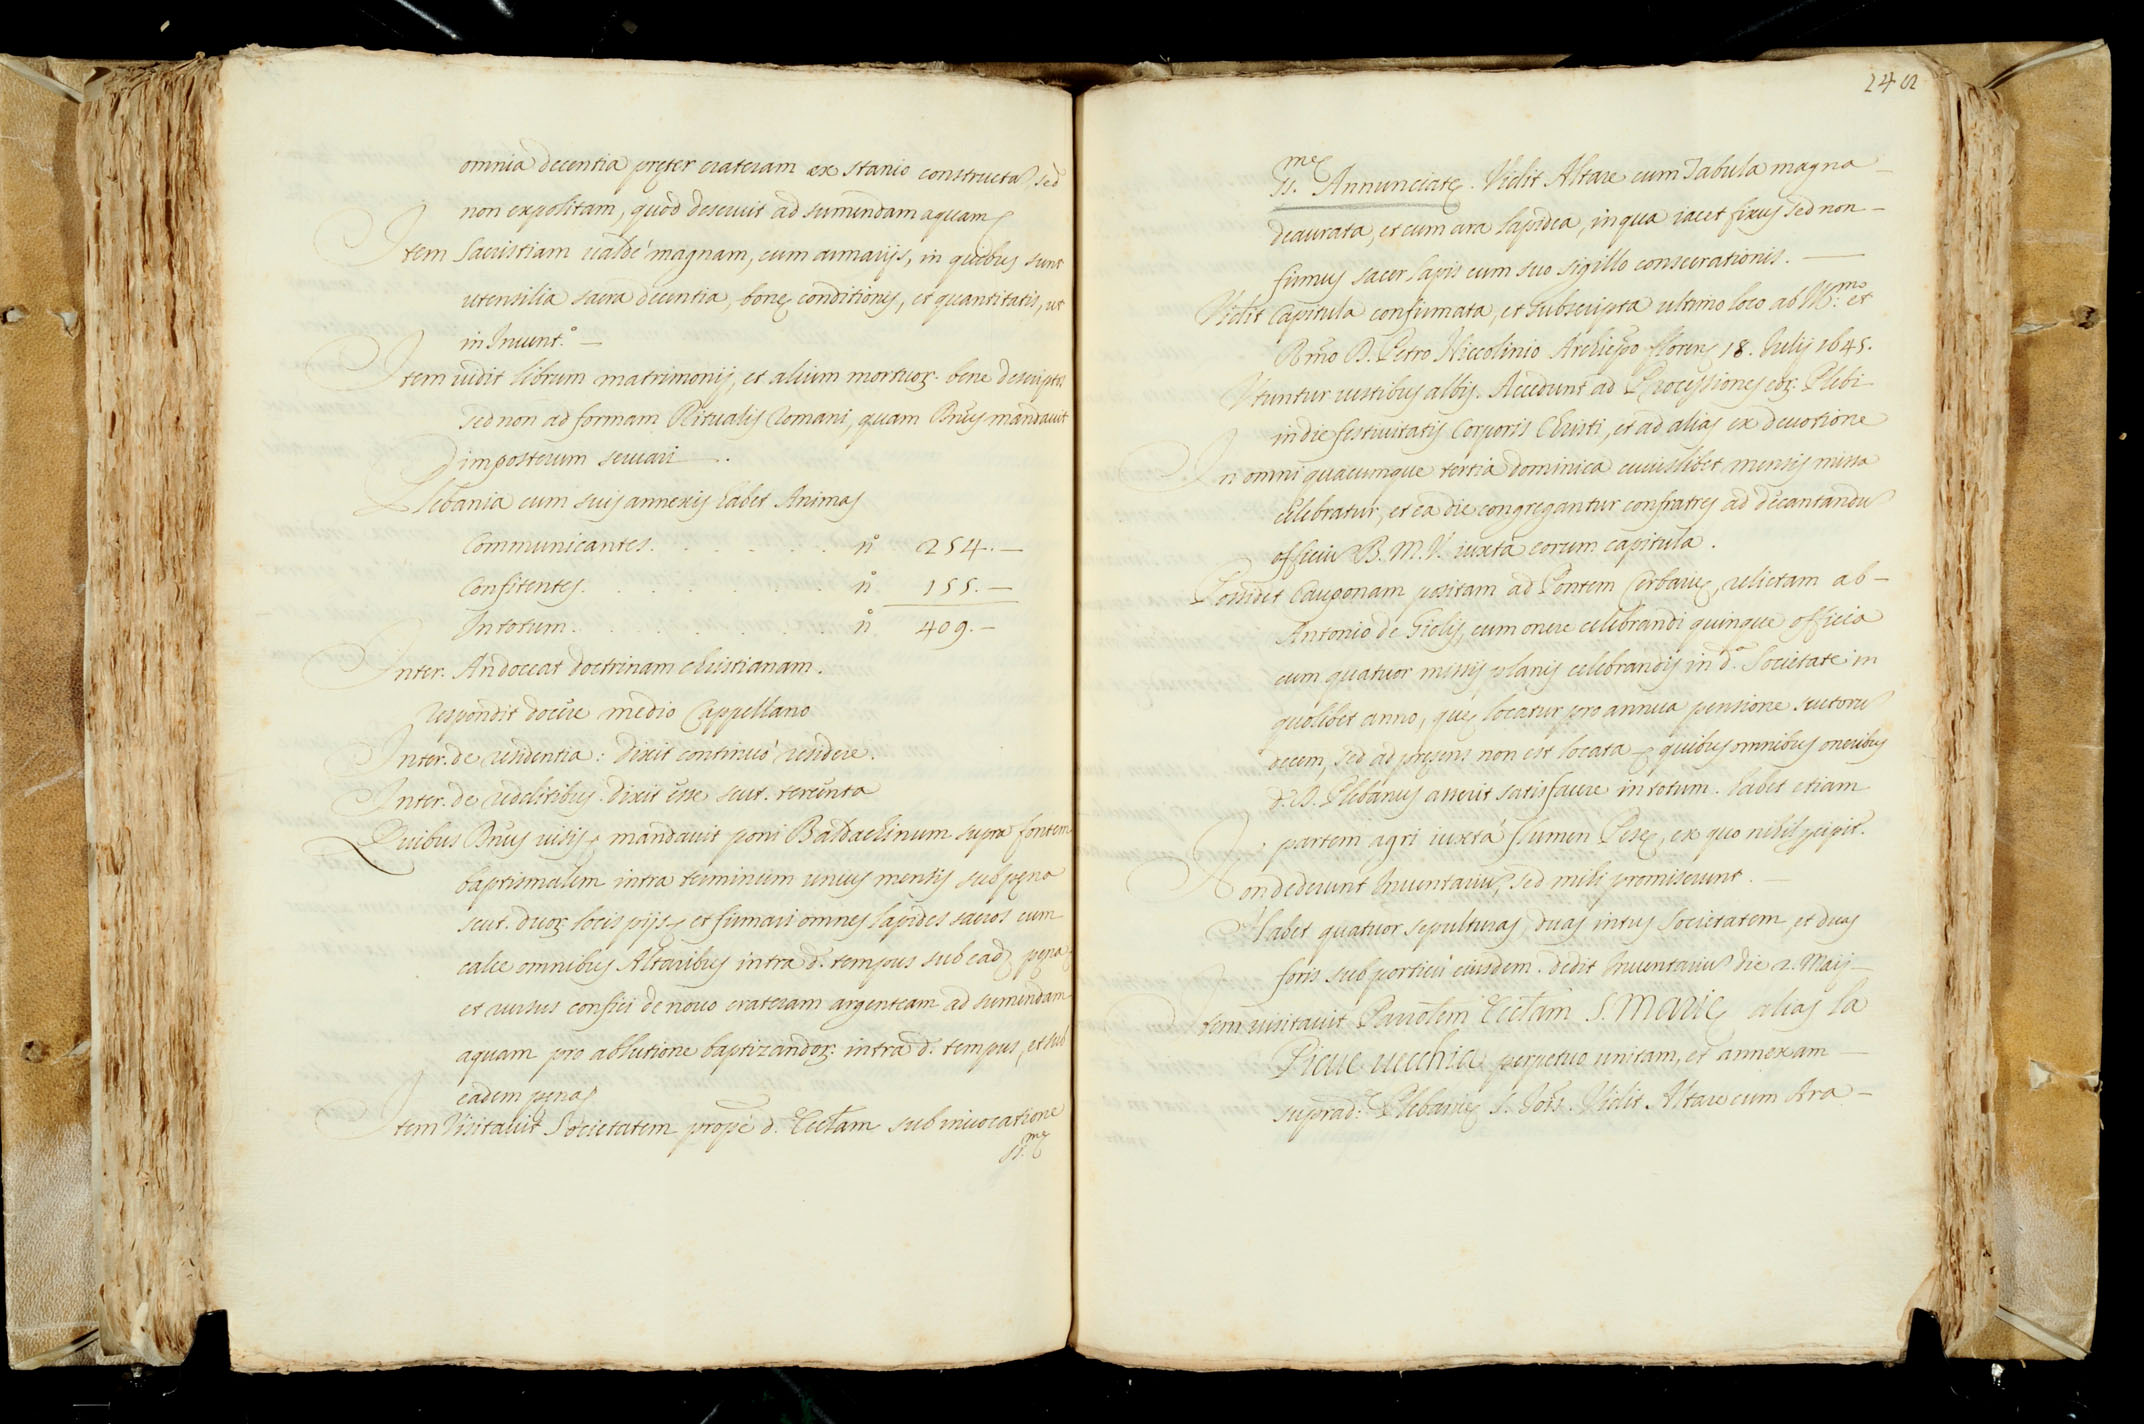 omnia decentia pręter crateram ex stanio constructa, sed
non expolitam, quod deseruit ad sumendam aquam
Item Sacristiam valdè magnam, cum armarijs, in quibus sunt
utensilia sacra decentia, bonę conditionis, et quantitatis, ut
in Invent.º —
Item vidit librum matrimonij, et alium mortuoꝝ. bene descriptos
sed non ad formam Ritualis Romani, quam Dnus mandavit
imposterum servari —.
Plebania cum suis annexis habet Animas
Communicantes. . . . . . . nº 254. —
Confitentes. . . . . . . . nº 155. —
In totum. . . . . . . . nº 409. —
Inter. An doceat doctrinam christianam.
respondit docere medio Cappellano
Inter. de residentia: dixit continuò residere.
Inter. de redditibus. dixit esse scut. tercenta
Quibus Dnus visis, mandavit poni Baldachinum supra fontem
baptismalem intra terminum unius mensis sub pęna
scut. duoꝝ locis pijs, et firmari omnes lapides sacros cum
calce omnibus Altaribus intra d. tempus sub ead. pęna,
et rursus confici de novo crateram argenteam ad sumendam
aquam pro ablutione baptizandoꝝ: intra d. tempus, et sub
eadem pena,
Item Visitavit Societatem propè d. Ecclam sub invocatione
SS.mę
242
SS.mę Annunciatę. Vidit Altare cum Tabula magna —
deaurata, et cum ara lapidea, in qua iacet fixus sed non —
firmus sacer lapis cum suo sigillo consecrationis. —
Vidit Capitula confirmata, et subscripta ultimo loco ab Ill.mo et
Rmo D. Petro Niccolinio Archiepo floren. 18. Iulij 1645.
Utuntur vestibus albis. Accedunt ad Processiones eoꝝ. Plebi
in die festivitatis Corporis Christi, et ad alias ex devotione
In omni quacumque tertia dominica cuiuslibet mensis missa
celebratur, et ea die congregantur confratres ad decantandu
officiu B. M. V. iuxta eorum capitula.
Possidet Cauponam positam ad Pontem Cerbarię, relictam ab —
Antonio de Giolis, cum onere celebrandi quinque officia
cum quatuor missis planis celebrandis in d.ª Societate in
quolibet anno, quę locatur pro annua pensione scutoru
decem, sed ad pręsens non est locata, quibus omnibus oneribus
d. D. Plebanus asserit satisfacere in totum. habet etiam
partem agri iuxtà flumen Pesę, ex quo nihil pcipit.
Non dederunt Inventariu, sed mihi promiserunt. —
Habet quatuor sepulturas, duas intus Societatem, et duas
foris sub porticu eiusdem. dedit Inventariu die 2. Maij —
Item visitavit Parolem Ecclam S. Marię alias la
Pieve vecchia perpetuo unitam, et annexam —
suprad: Plebanię S. Iois. Vidit Altare cum Ara —